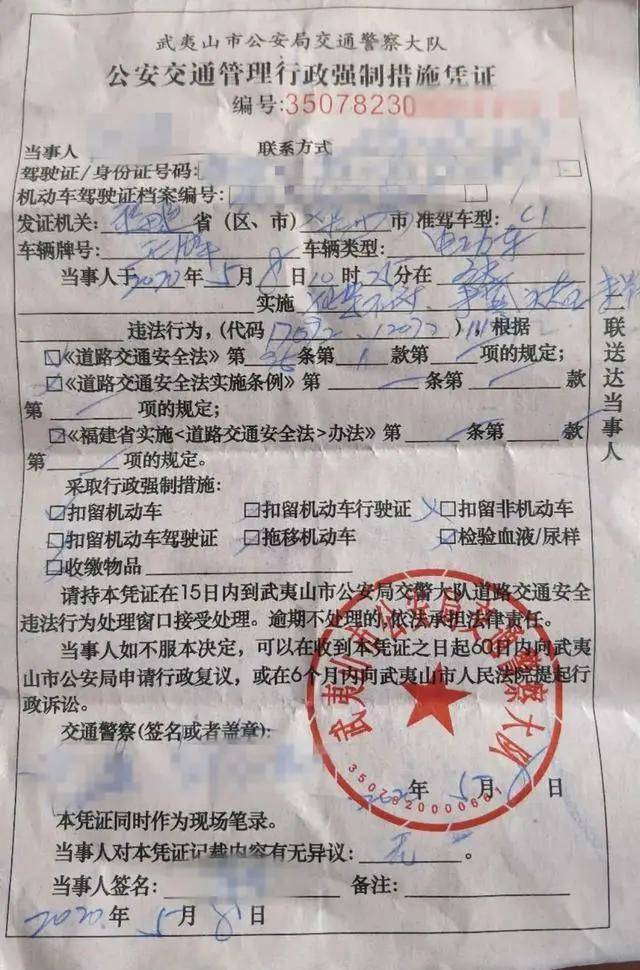 武夷山市公安局交通警察大队
公安交通管理行政强制措施凭证
编号:35078230
当事人 联系方式
驾驶证/身份证号码:
机动车驾驶证档案编号:
发证机关: 福建 省(区、市) 市 准驾车型: C1
车辆牌号: 无牌 车辆类型:
当事人于2020年5月8日10时 分在
实施
违法行为,(代码
),根据
《道路交通安全法》第 条第1款第 项的规定;
《道路交通安全法实施条例》第 条第 款
第 项的规定;
《福建省实施<道路交通安全法>办法》第 条第 款
第 项的规定。
采取行政强制措施:
扣留机动车 扣留机动车行驶证 扣留非机动车
扣留机动车驾驶证 拖移机动车 检验血液/尿样
收缴物品
请持本凭证在15日内到武夷山市公安局交警大队道路交通安全
违法行为处理窗口接受处理。逾期不处理的,依法承担法律责任。
当事人如不服本决定,可以在收到本凭证之日起60日内向武夷
山市公安局申请行政复议,或在6个月内向武夷山市人民法院提起行
政诉讼。
交通警察(签名或者盖章):
年5月8日
武夷山市公安局交通警察大队
本凭证同时作为现场笔录。
当事人对本凭证记载内容有无异议: 无 。
当事人签名: 备注:
2020年5月8日
一联送达当事人